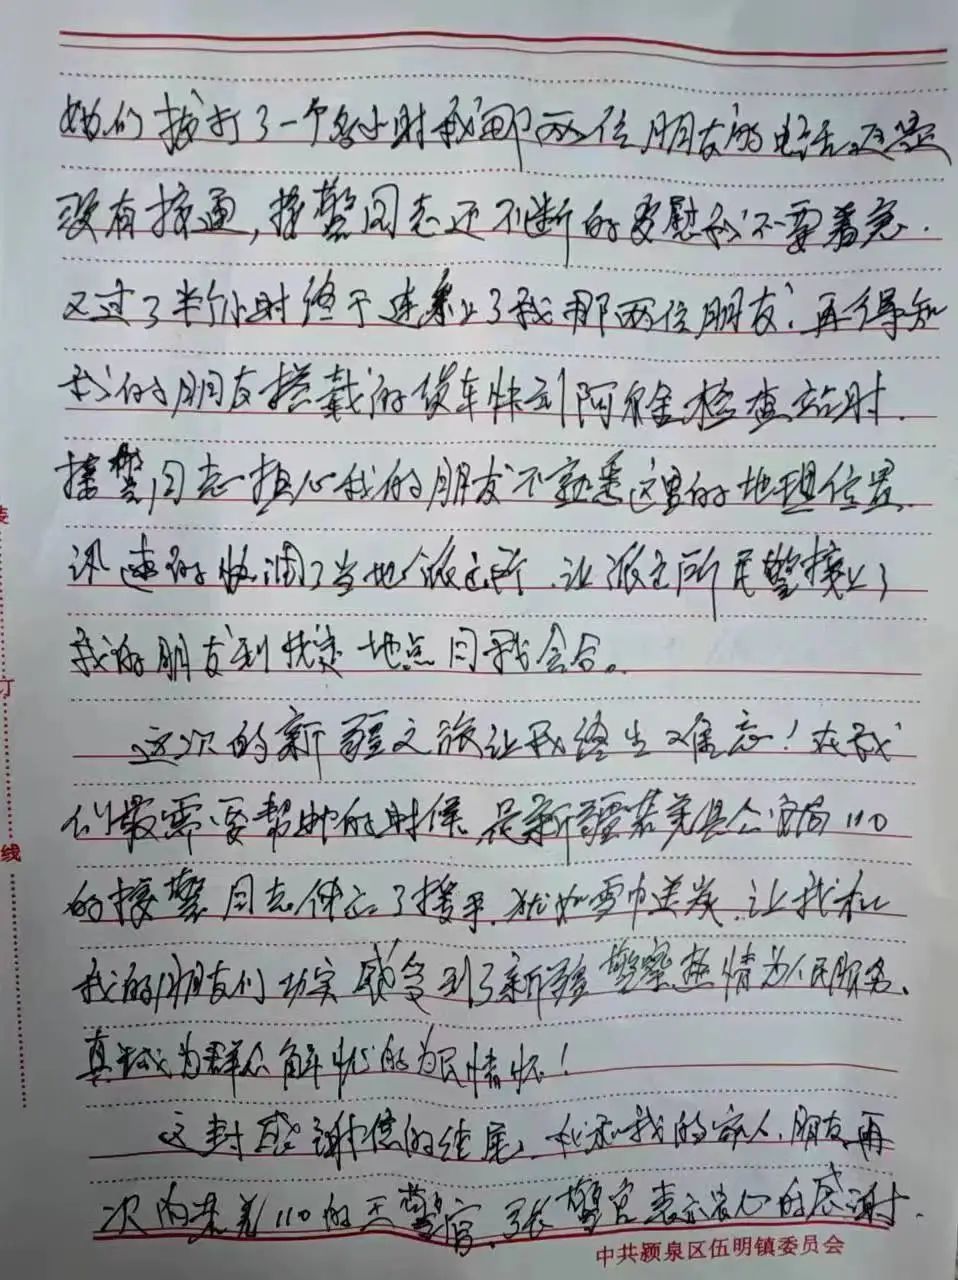 她们拨打了一个多小时我那两位朋友的电话,还是
没有接通,接警同志还不断的安慰我不要着急.
又过了半个小时终于连系上了我那两位朋友,再得知
我的朋友搭载的货车快到阿尔金检查站时.
接警同志担心我的朋友不熟悉这里的地理位置.
迅速的协调了当地派出所,让派出所民警接上了
我的朋友到指定地点同我会合。
这次的新疆之旅让我终生难忘!在我
们最需要帮助的时候,是新疆若羌县公安局110
的接警同志伸出了援手,犹如雪中送炭,让我和
我的朋友们切实感受到了新疆警察热情为人民服务、
真诚为群众解忧的为民情怀!
这封感谢信的结尾,我和我的家人、朋友再
次向若羌110的王警官、张警官表示衷心的感谢.
中共颍泉区伍明镇委员会
装
订
线